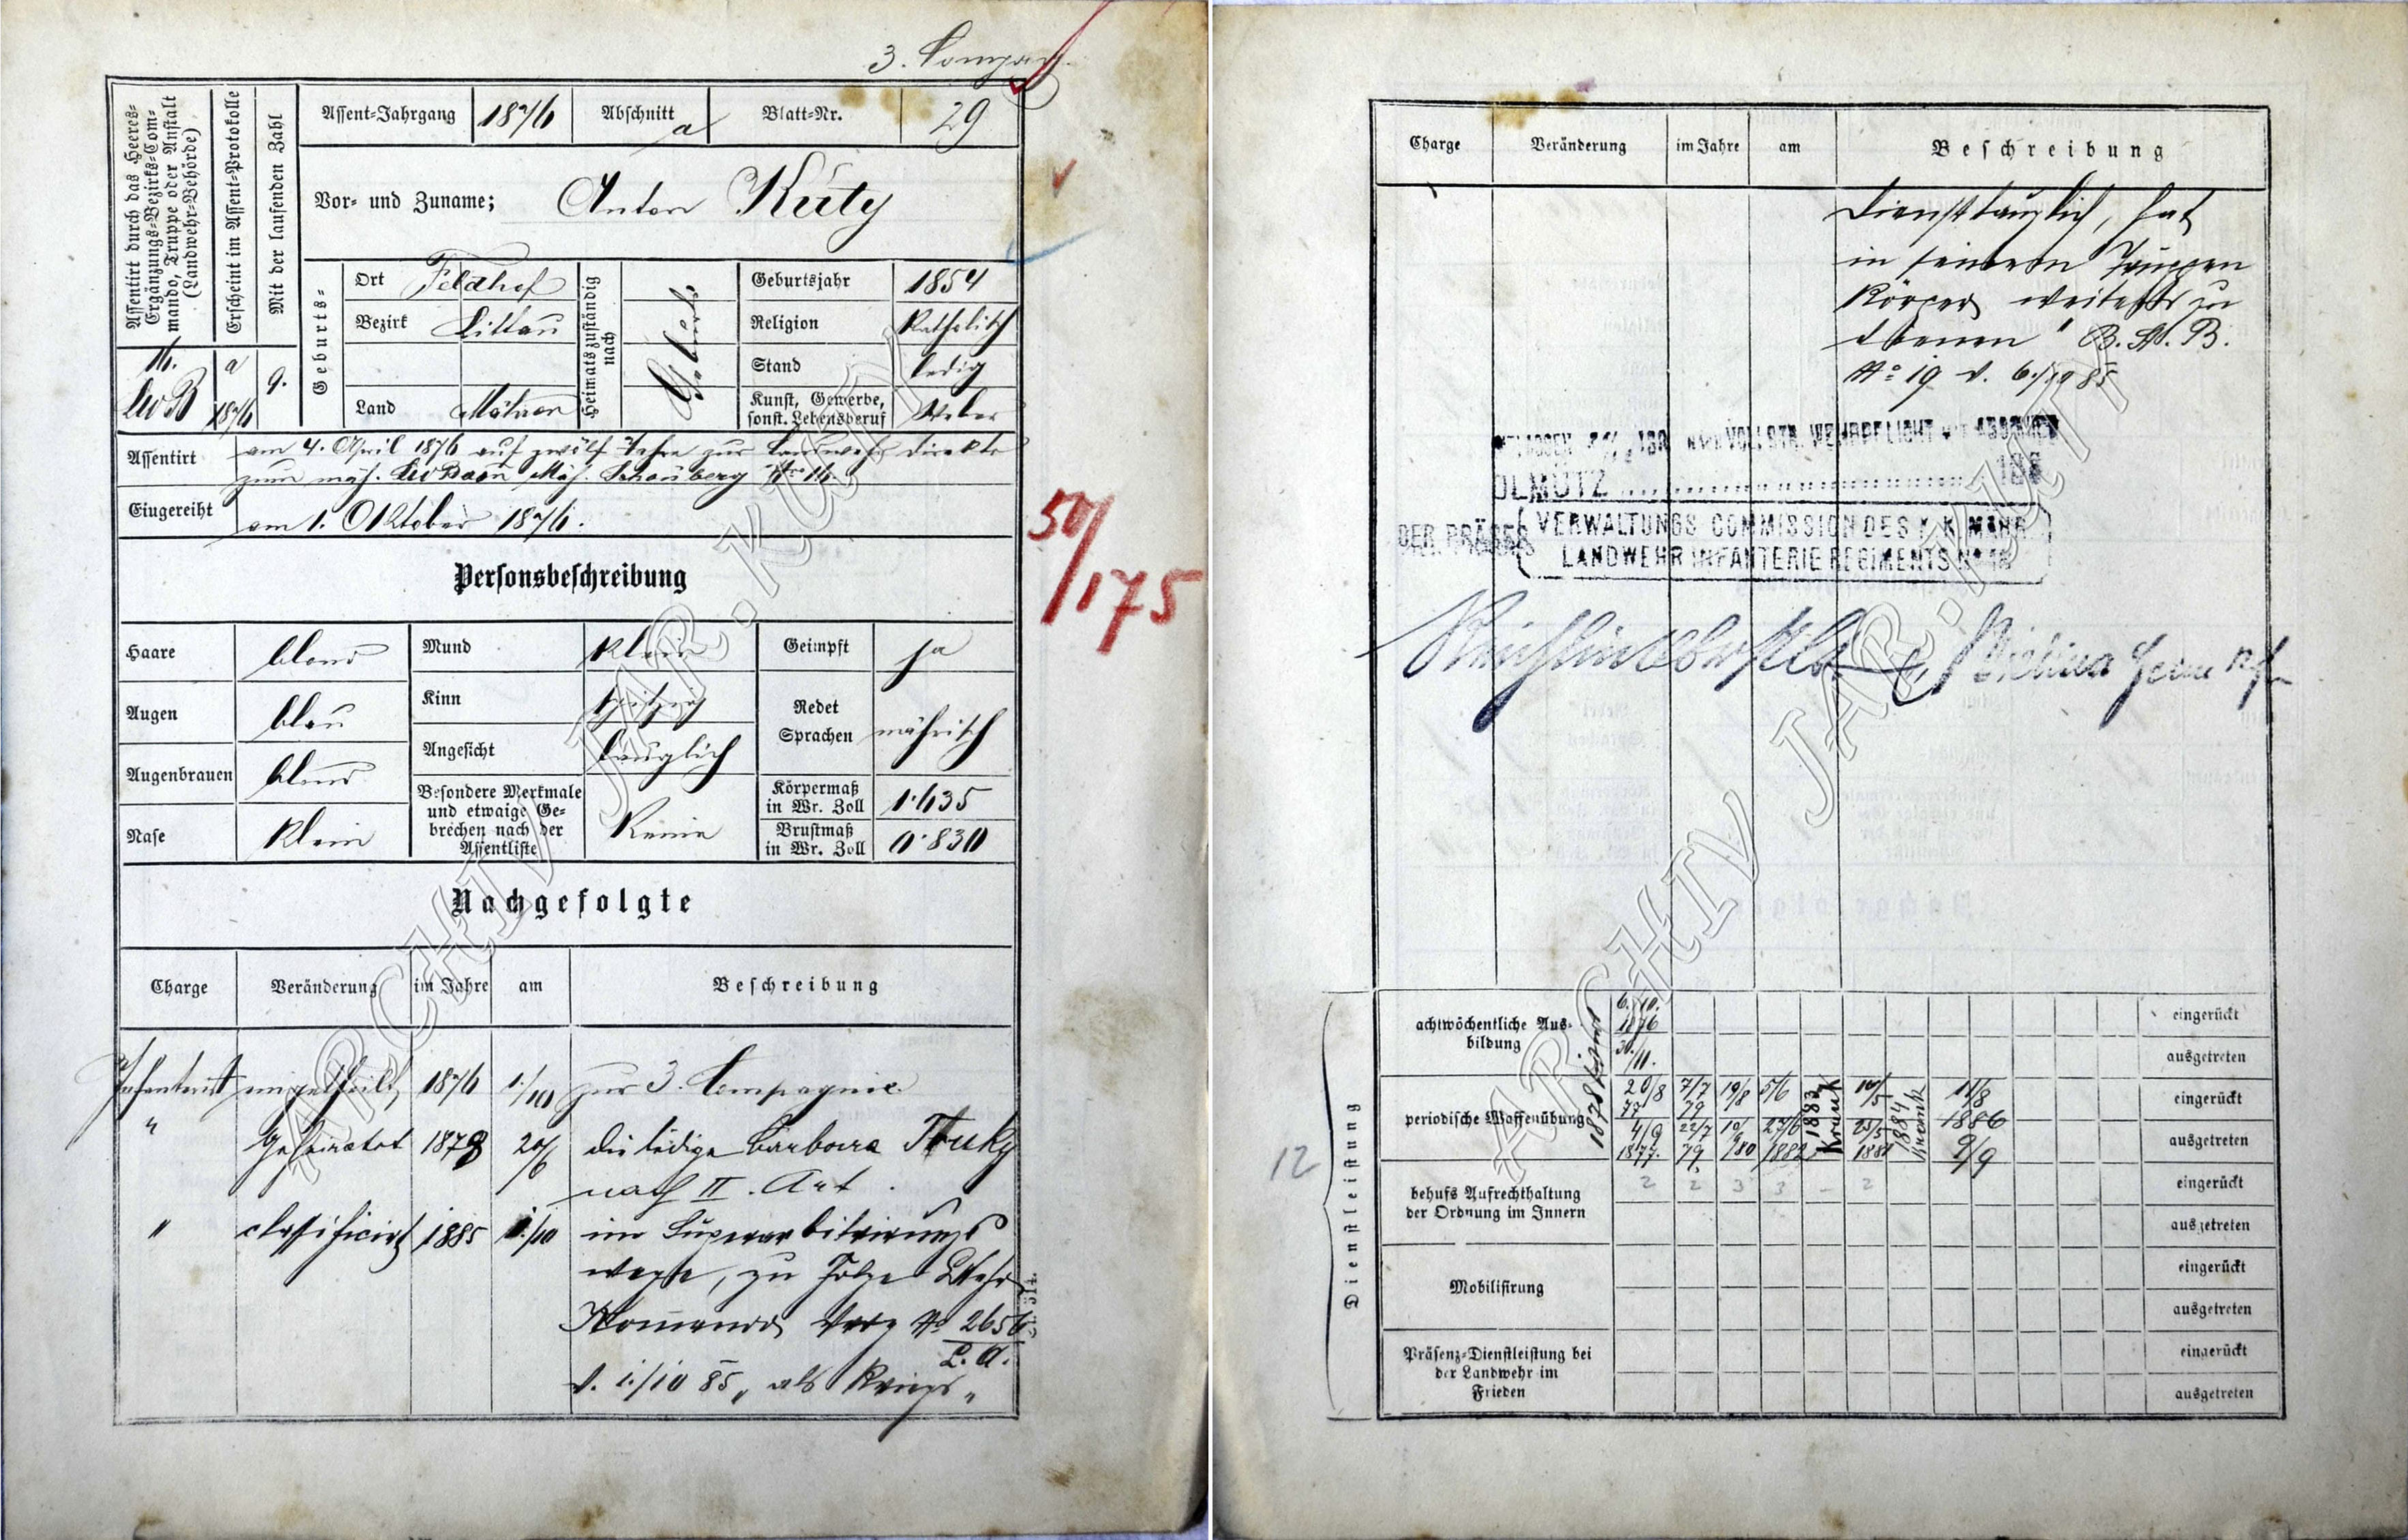 3. Compag.
Assentirt durch das Heeres-Ergänzungs-Bezirks-Commando, Truppe oder Anstalt (Landwehr-Behörde)
Erscheint im Assent-Protokolle
Mit der laufenden Zahl
Assent-Jahrgang 1876 Abschnitt a Blatt-Nr. 29
Vor- und Zuname; Anton Kuty
Geburts-
Ort Feldhof
Bezirk Littau
Land Mähren
Heimatszuständig nach
Geburtsjahr 1854
Religion Katholisch
Stand ledig
Kunst, Gewerbe, sonst. Lebensberuf Weber
16. LwB a 1876 9.
Assentirt am 4. April 1876 auf zwölf Jahre zur Landwehr direkte
zum mäh. Lw Baon Mäh. Schönberg Nro 16.
Eingereiht am 1. Oktober 1876.
50/175
Personsbeschreibung
Haare blond
Augen blau
Augenbrauen blond
Nase klein
Mund klein
Kinn spitzig
Angesicht länglich
Besondere Merkmale und etwaige Gebrechen nach der Assentliste Keine
Geimpft ja
Redet Sprachen mährisch
Körpermaß in Wr. Zoll 1·635
Brustmaß in Wr. Zoll 0·830
Nachgefolgte
Charge Veränderung im Jahre am Beschreibung
Infanterist eingetheilt 1876 1./10 zur 3. Compagnie.
" Geheiratet 1878 20/6 die ledige Barbara
nach II. Art.
" classificirt 1885 1./10 im Superarbitrirungs
wege, zu Folge LWehr
Komando Vdg No 2656
L. A.
v. 1./10 85 „ als Kriegs „
ARCHIV JAR. KUTÝ
Charge Veränderung im Jahre am Beschreibung
diensttauglich, hat
in seinem Truppen
Körper weiters zu
dienen " B. A. B.
No 19 v. 6./10 85
VOLLSTR. WEHRPFLICHT
OLMÜTZ 188
DER PRÄSES
VERWALTUNGS COMMISSION DES K.K. MÄHR
LANDWEHR INFANTERIE REGIMENTS
Dienstleistung
12
achtwöchentliche Ausbildung 6./10. 1876 eingerückt
30./11. ausgetreten
periodische Waffenübung 20/8 77 7/7 79 19/8 5/6 10/5 11/8 1886 eingerückt
4/9 1877. 22/7 79. 80 1882 9/9 ausgetreten
1883 Krank
1884 Krank
2 2 3 3 – 2
behufs Aufrechthaltung der Ordnung im Innern eingerückt
ausgetreten
Mobilisirung eingerückt
ausgetreten
Präsenz-Dienstleistung bei der Landwehr im Frieden eingerückt
ausgetreten
ARCHIV JAR. KUTÝ